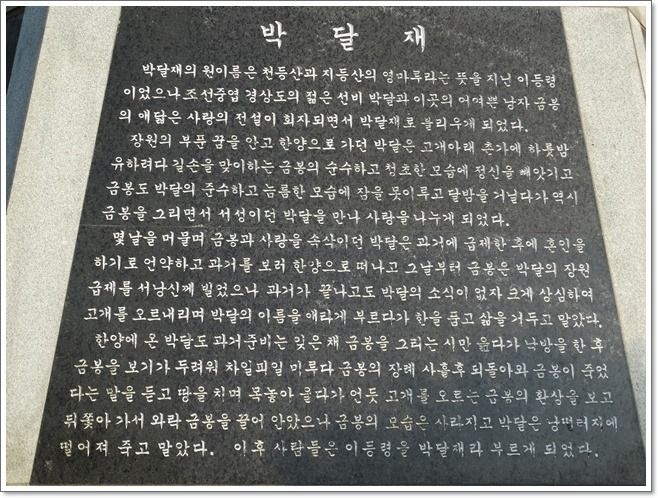 박 달 재
박달재의 원이름은 천등산과 지등산의 영마루라는 뜻을 지닌 이등령
이었으나 조선중엽 경상도의 젊은 선비 박달과 이곳의 어여쁜 낭자 금봉
의 애닯은 사랑의 전설이 회자되면서 박달재로 불리우게 되었다.
장원의 부푼 꿈을 안고 한양으로 가던 박달은 고개아래 촌가에 하룻밤
유하려다 길손을 맞이하는 금봉의 순수하고 청초한 모습에 정신을 빼앗기고
금봉도 박달의 준수하고 늠름한 모습에 잠을 못이루고 달밤을 거닐다가 역시
금봉을 그리면서 서성이던 박달을 만나 사랑을 나누게 되었다.
몇날을 머물며 금봉과 사랑을 속삭이던 박달은 과거에 급제한 후에 혼인을
하기로 언약하고 과거를 보러 한양으로 떠나고 그날부터 금봉은 박달의 장원
급제를 서낭신께 빌었으나 과거가 끝나고도 박달의 소식이 없자 크게 상심하여
고개를 오르내리며 박달의 이름을 애타게 부르다가 한을 품고 삶을 거두고 말았다.
한양에 온 박달도 과거준비는 잊은 채 금봉을 그리는 시만 읊다가 낙방을 한 후
금봉을 보기가 두려워 차일피일 미루다 금봉의 장례 사흘후 되돌아와 금봉이 죽었
다는 말을 듣고 땅을 치며 목놓아 울다가 언듯 고개를 오르는 금봉의 환상을 보고
뒤쫓아 가서 와락 금봉을 끌어 안았으나 금봉의 모습은 사라지고 박달은 낭떠러지에
떨어져 죽고 말았다. 이후 사람들은 이등령을 박달재라 부르게 되었다.